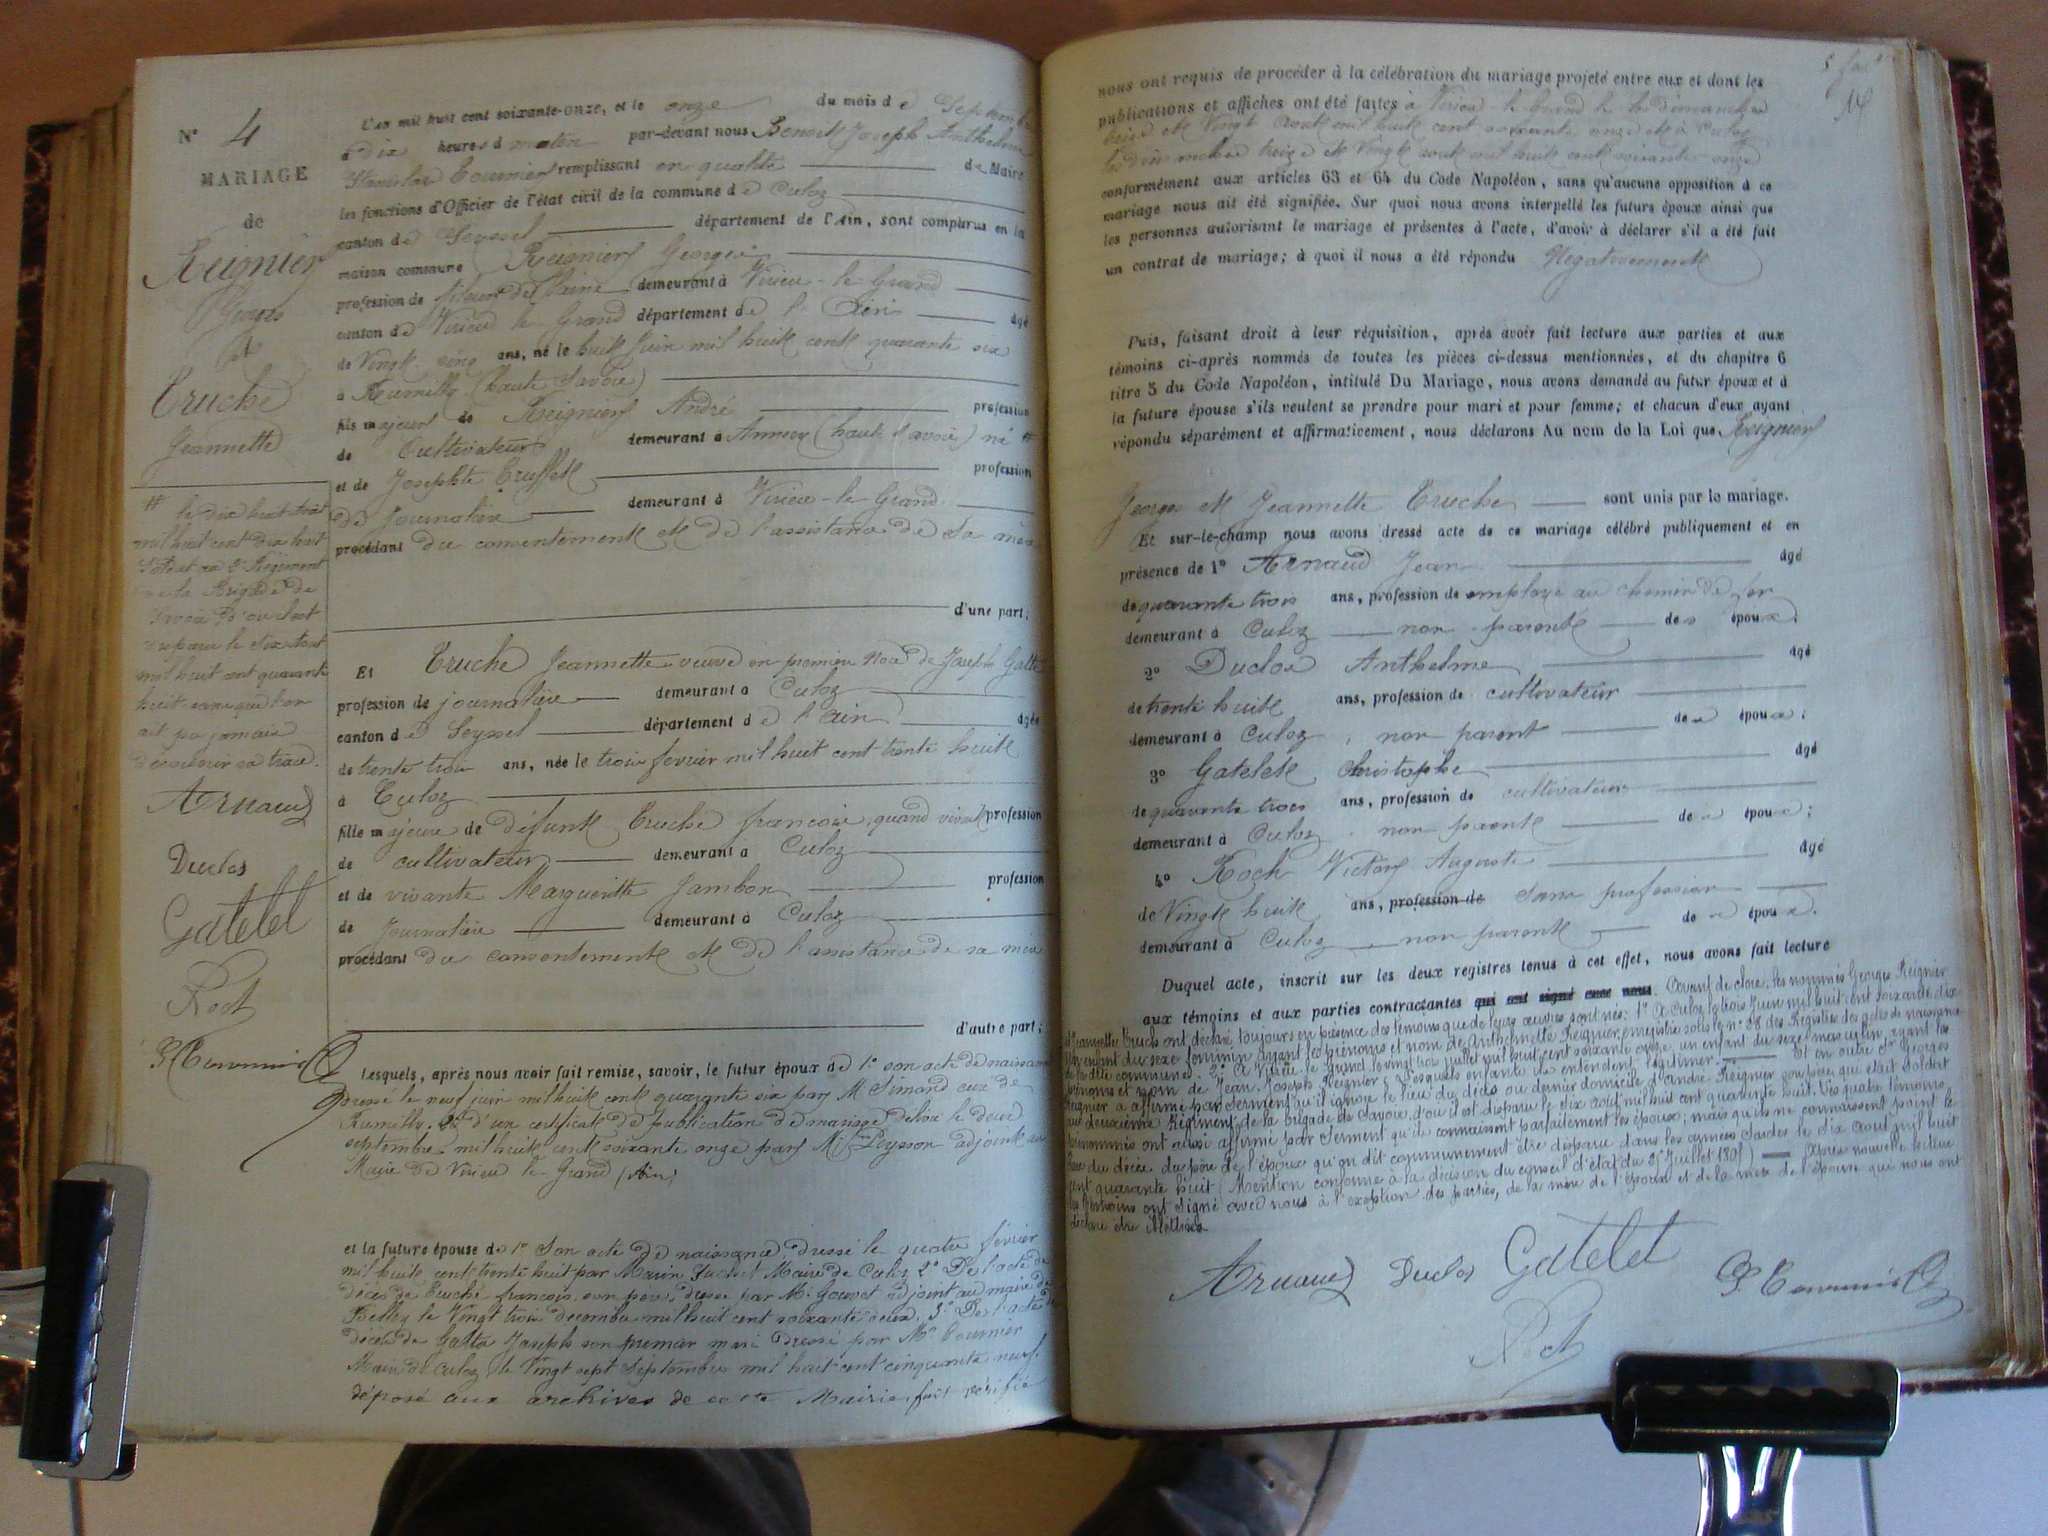 N° 4
MARIAGE
de
Reignier
Georges
et
Truche
Jeannette
# le dix huit août
mil huit cent dix huit
Soldat au 2e Régiment
de la Brigade de
Savoie d'où il est
disparu le six août
mil huit cent quarante
huit sans que l'on
ait pu jamais
découvrir sa trace.
Arnaud
Duclos
Gatelet
Roch
L'an mil huit cent soixante-onze, et le onze du mois de Septembre
à dix heures d matin par-devant nous Benoit Joseph Anthelme
Stanislas Tournier remplissant en qualité de Maire
les fonctions d'Officier de l'état civil de la commune de Culoz
canton de Seyssel département de l'Ain, sont comparus en la
maison commune Reignier Georges
profession de fileur de laine demeurant à Virieu-le-Grand
canton de Virieu le Grand département de l'Ain âgé
de Vingt cinq ans, né le huit Juin mil huit cent quarante six
à Rumilly (haute Savoie)
fils majeur de Reignier André profession
de Cultivateur demeurant à Annecy (haute Savoie) né #
et de Josephte Truffet profession
de Journalière demeurant à Virieu-le-Grand
procédant du consentement et de l'assistance de sa mère
d'une part;
Et Truche Jeannette veuve en première Noce de Joseph Galta
profession de journalière demeurant à Culoz
canton de Seyssel département de l'Ain âgée
de trente trois ans, née le trois février mil huit cent trente huit
à Culoz
fille majeure de défunt Truche françois, quand vivait profession
de cultivateur demeurant à Culoz
et de vivante Marguerite Jambon profession
de Journalière demeurant à Culoz
procédant du consentement et de l'assistance de sa mère
d'autre part;
Lesquels, après nous avoir fait remise, savoir, le futur époux de 1° son acte de naissance
dressé le neuf juin mil huit cent quarante six par M Simond curé de
Rumilly. 2° d'un certificat de publication de mariage délivré le deux
septembre mil huit cent soixante onze par M. Peysson adjoint au
Maire de Virieu le Grand (Ain)
et la future épouse de 1° Son acte de naissance, dressé le quatre février
mil huit cent trente huit par Marin Maire de Culoz 2° De l'acte de
décès de Truche françois, son père, dressé par M. Gouvet adjoint au maire de
Belley le Vingt trois décembre mil huit cent soixante deux. 3° De l'acte de
décès de Galta Joseph son premier mari dressé par Mr Tournier
Maire de Culoz, le Vingt sept Septembre mil huit cent cinquante neuf.
déposé aux archives de cette Mairie, fait vérifié
nous ont requis de procéder à la célébration du mariage projeté entre eux et dont les
publications et affiches ont été faites à Virieu-le-Grand le les dimanches
treize et Vingt août mil huit cent soixante onze et à Culoz
les dimanches treize et Vingt août mil huit cent soixante onze
conformément aux articles 63 et 64 du Code Napoléon, sans qu'aucune opposition à ce
mariage nous ait été signifiée. Sur quoi nous avons interpellé les futurs époux ainsi que
les personnes autorisant le mariage et présentes à l'acte, d'avoir à déclarer s'il a été fait
un contrat de mariage; à quoi il nous a été répondu Négativement
Puis, faisant droit à leur réquisition, après avoir fait lecture aux parties et aux
témoins ci-après nommés de toutes les pièces ci-dessus mentionnées, et du chapitre 6
titre 5 du Code Napoléon, intitulé Du Mariage, nous avons demandé au futur époux et à
la future épouse s'ils veulent se prendre pour mari et pour femme; et chacun d'eux ayant
répondu séparément et affirmativement, nous déclarons Au nom de la Loi que Reignier
Georges et Jeannette Truche sont unis par le mariage.
Et sur-le-champ nous avons dressé acte de ce mariage célébré publiquement et en
présence de 1° Arnaud Jean âgé
de quarante trois ans, profession de employé au chemin de fer
demeurant à Culoz non parent des époux.
2° Duclos Anthelme âgé
de trente huit ans, profession de cultivateur
demeurant à Culoz, non parent des époux;
3° Gatelet Christophe âgé
de quarante trois ans, profession de cultivateur
demeurant à Culoz, non parent des époux;
4° Roch Victor Auguste âgé
de Vingt huit ans, profession de Sans profession
demeurant à Culoz, non parent des époux.
Duquel acte, inscrit sur les deux registres tenus à cet effet, nous avons fait lecture
aux témoins et aux parties contractantes qui ont signé avec nous. Avant de clore, les nommés Georges Reignier
et Jeannette Truche ont déclaré toujours en présence des témoins que de leurs œuvres sont nés: 1° A Culoz le trois Juin mil huit cent soixante dix
Un enfant du sexe féminin ayant les prénoms et nom de Anthelmette Reignier, enregistré sous le n° 28 des Registres des actes de naissance
de la dite commune. 2° A Virieu le Grand le vingt trois juillet mil huit cent soixante onze, un enfant du sexe masculin, ayant les
prénoms et nom de Jean Joseph Reignier; Lesquels enfants ils entendent légitimer. Et en outre Sr Georges
Reignier a affirmé par serment qu'il ignore le lieu du décès ou dernier domicile d'André Reignier son père qui était Soldat
au deuxième Régiment de la brigade de Savoie, d'où il est disparu le six août mil huit cent quarante huit. Les quatre témoins
sus nommés ont aussi affirmé par serment qu'ils connaissent parfaitement les époux; mais qu'ils ne connaissent point le
lieu du décès du père de l'époux qu'on dit communément être disparu dans les armées Sardes le dix août mil huit
cent quarante huit (Mention conforme à la décision du conseil d'état du Juillet 1805) Après nouvelle lecture
les témoins ont signé avec nous à l'exception des parties, de la mère de l'époux et de la mère de l'épouse qui nous ont
déclaré être illettrées
Arnaud Duclos Gatelet
Roch